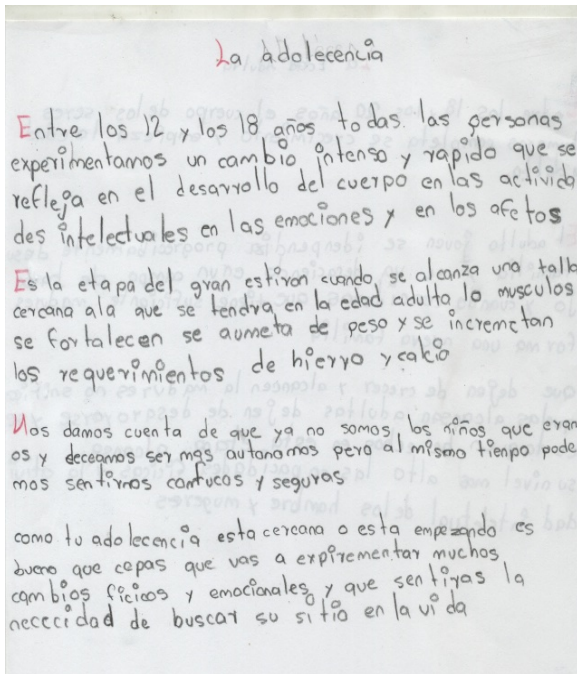 La adolecencia
Entre los 12 y los 18 años todas las personas
experimentamos un cambio intenso y rapido que se
refleja en el desarrollo del cuerpo en las activida
des intelectuales en las emociones y en los afetos
Es la etapa del gran estiron cuando se alcanza una talla
cercana ala que se tendra en la edad adulta los musculos
se fortalecen se aumeta de peso y se incremetan
los requerimientos de hierro y calcio
Nos damos cuenta de que ya no somos los niños que eran
os y deceamos ser mas autonomos pero al mismo tienpo pode
mos sentirnos confucos y seguras
como tu adolecencia esta cercana o esta empezando es
bueno que cepas que vas a expirementar muchos
cambios ficicos y emocionales y que sentiras la
necccidad de buscar su sitio en la vida